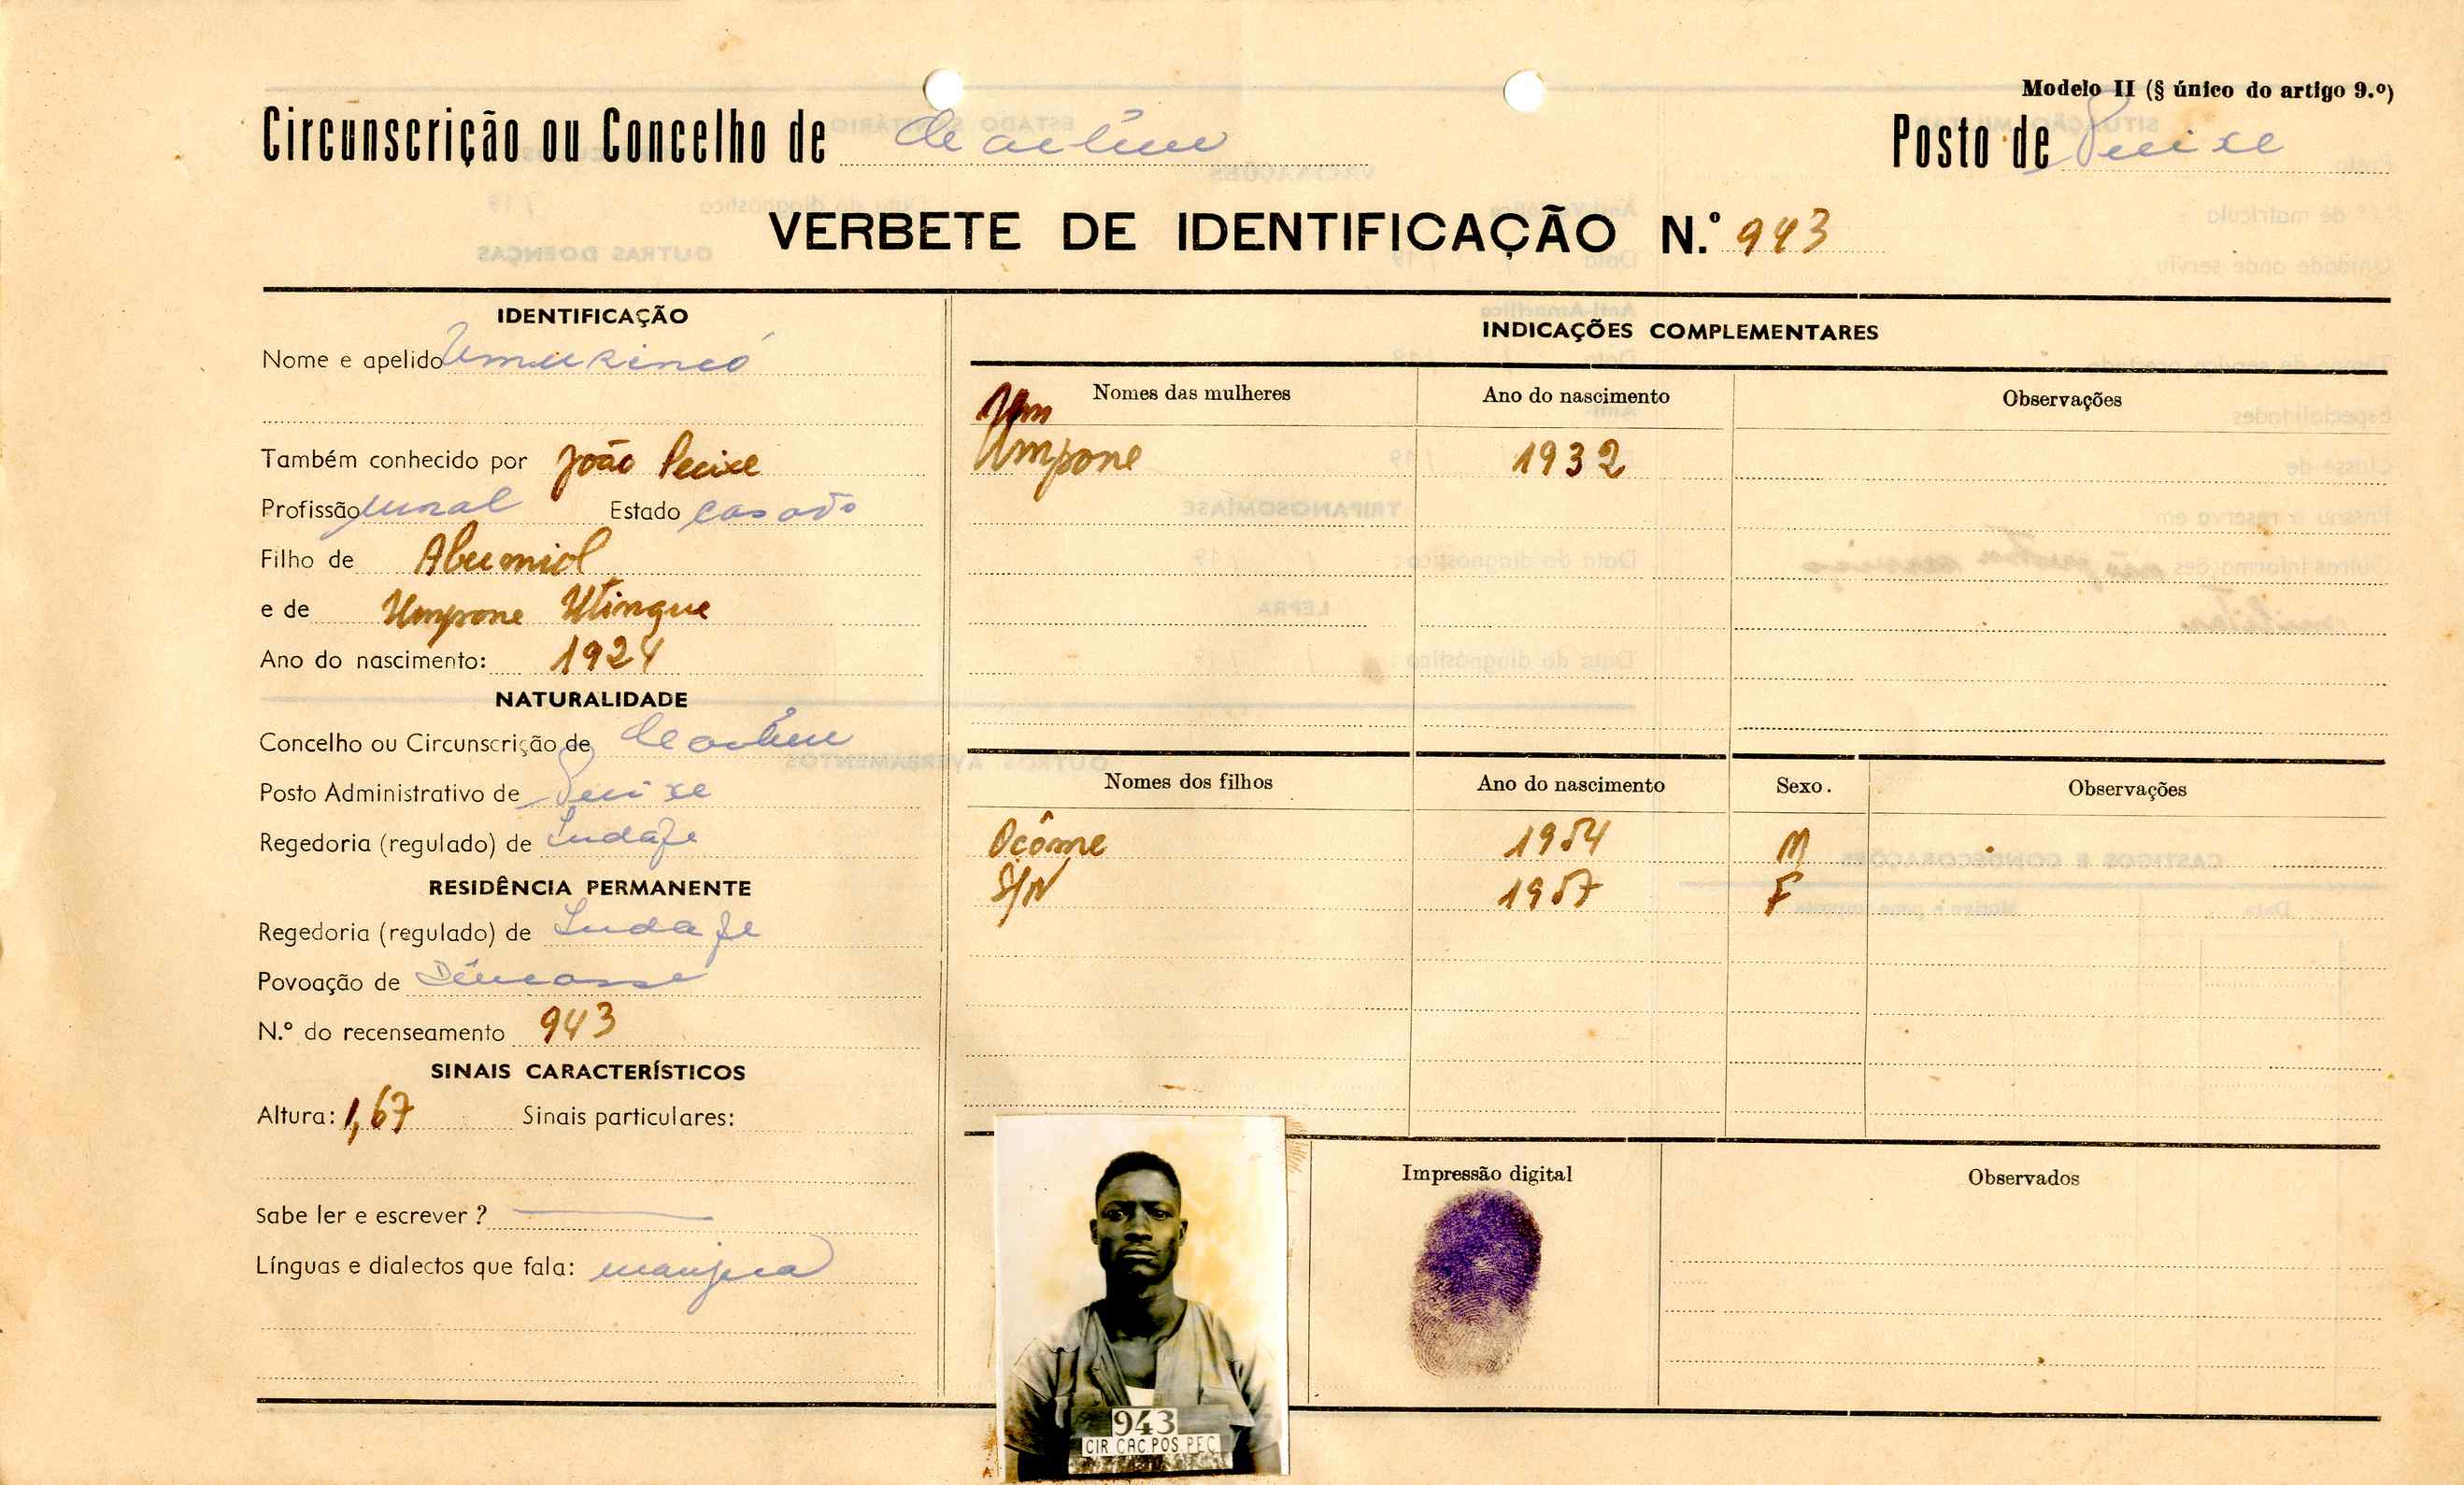 Modelo II (§ único do artigo 9.º)
Circunscrição ou Concelho de Cacheu
Posto de Pecixe
VERBETE DE IDENTIFICAÇÃO N.º 943
IDENTIFICAÇÃO
Nome e apelido
Também conhecido por João Pecixe
Profissão rural Estado casado
Filho de Abumiol
e de Umpone Utingue
Ano do nascimento: 1924
NATURALIDADE
Concelho ou Circunscrição de Cacheu
Posto Administrativo de Pecixe
Regedoria (regulado) de Indafe
RESIDÊNCIA PERMANENTE
Regedoria (regulado) de Indafe
Povoação de
N.º do recenseamento 943
SINAIS CARACTERÍSTICOS
Altura: 1,67 Sinais particulares:
Sabe ler e escrever ?
Línguas e dialectos que fala: manjaca
INDICAÇÕES COMPLEMENTARES
Nomes das mulheres Ano do nascimento Observações
Um
Umpone 1932
Nomes dos filhos Ano do nascimento Sexo. Observações
Ocôme 1954 M
S/N 1957 F
Impressão digital
Observados
943
CIR.CAC.POS.PEC